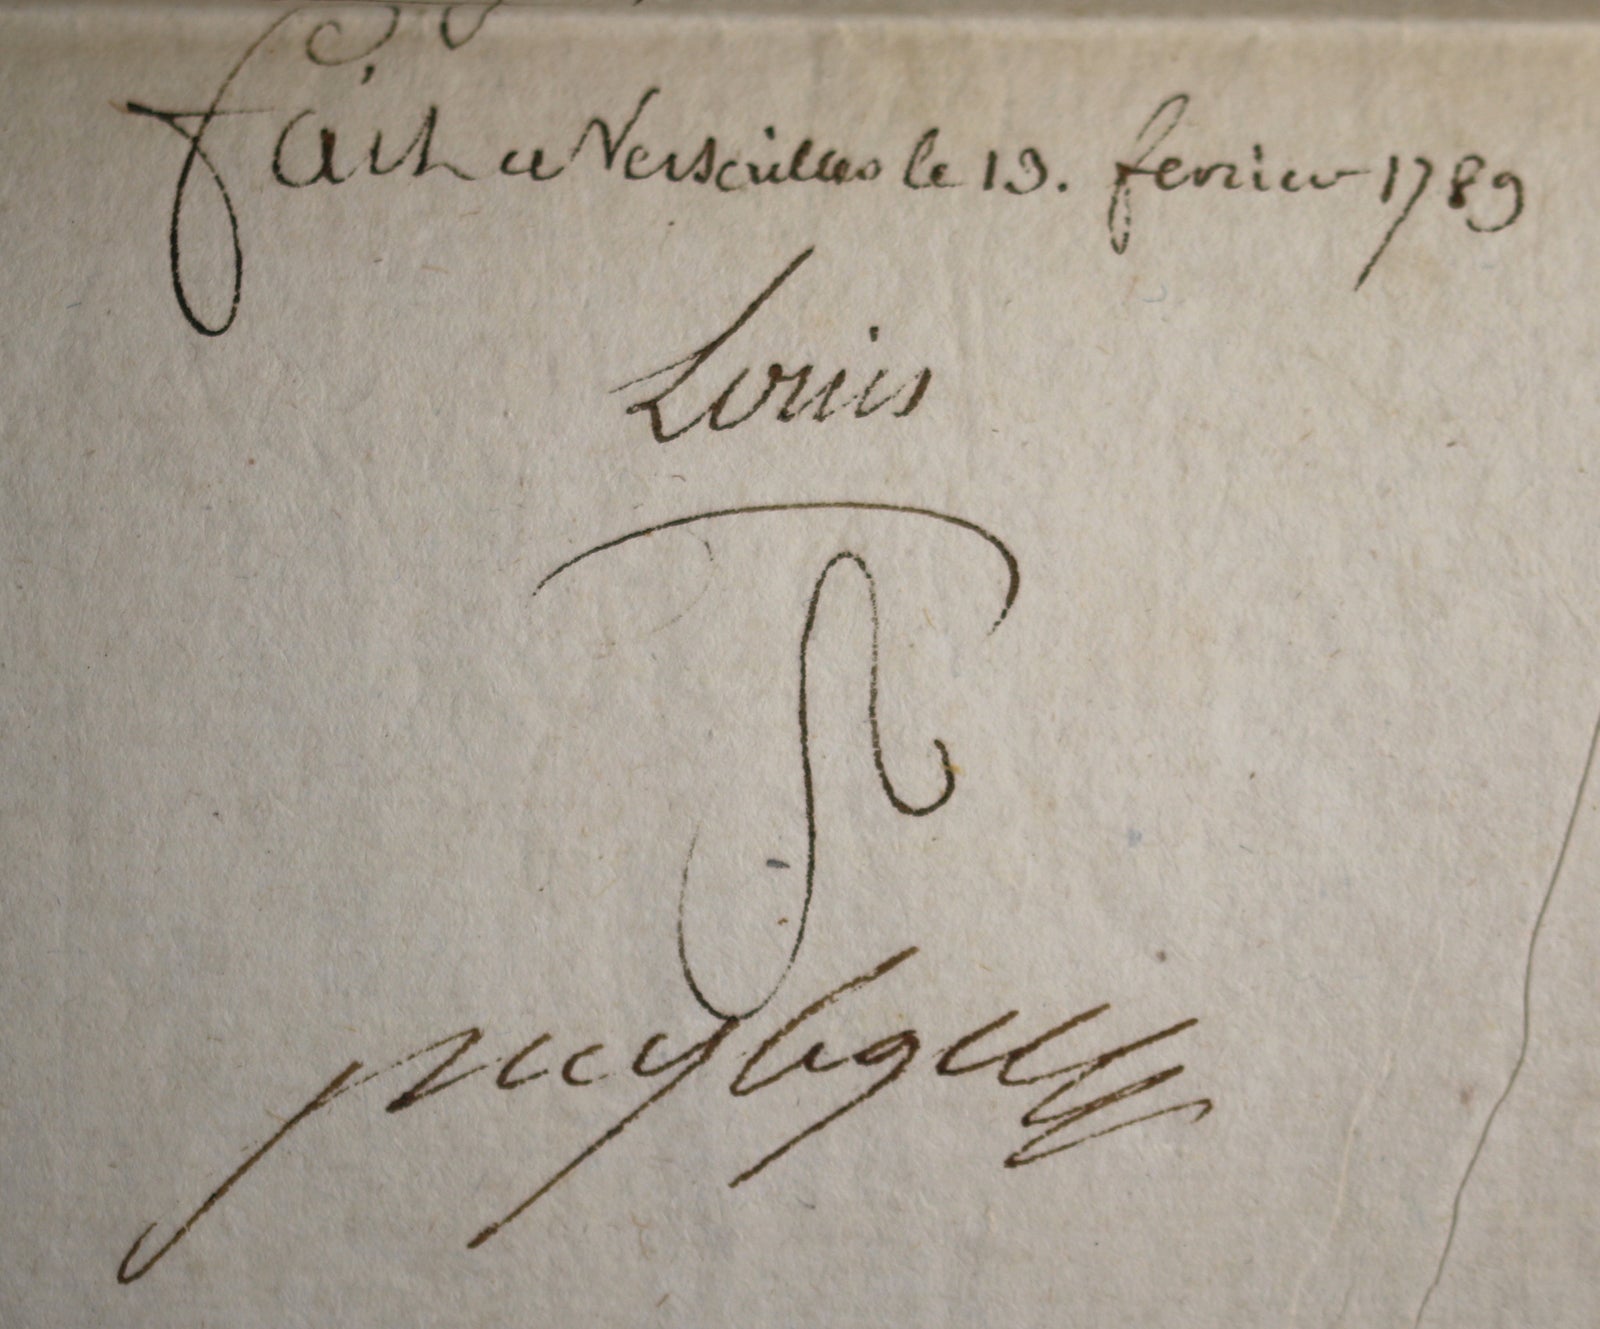 Fait a Versailles le 13. fevrier 1789
Louis
puysegur